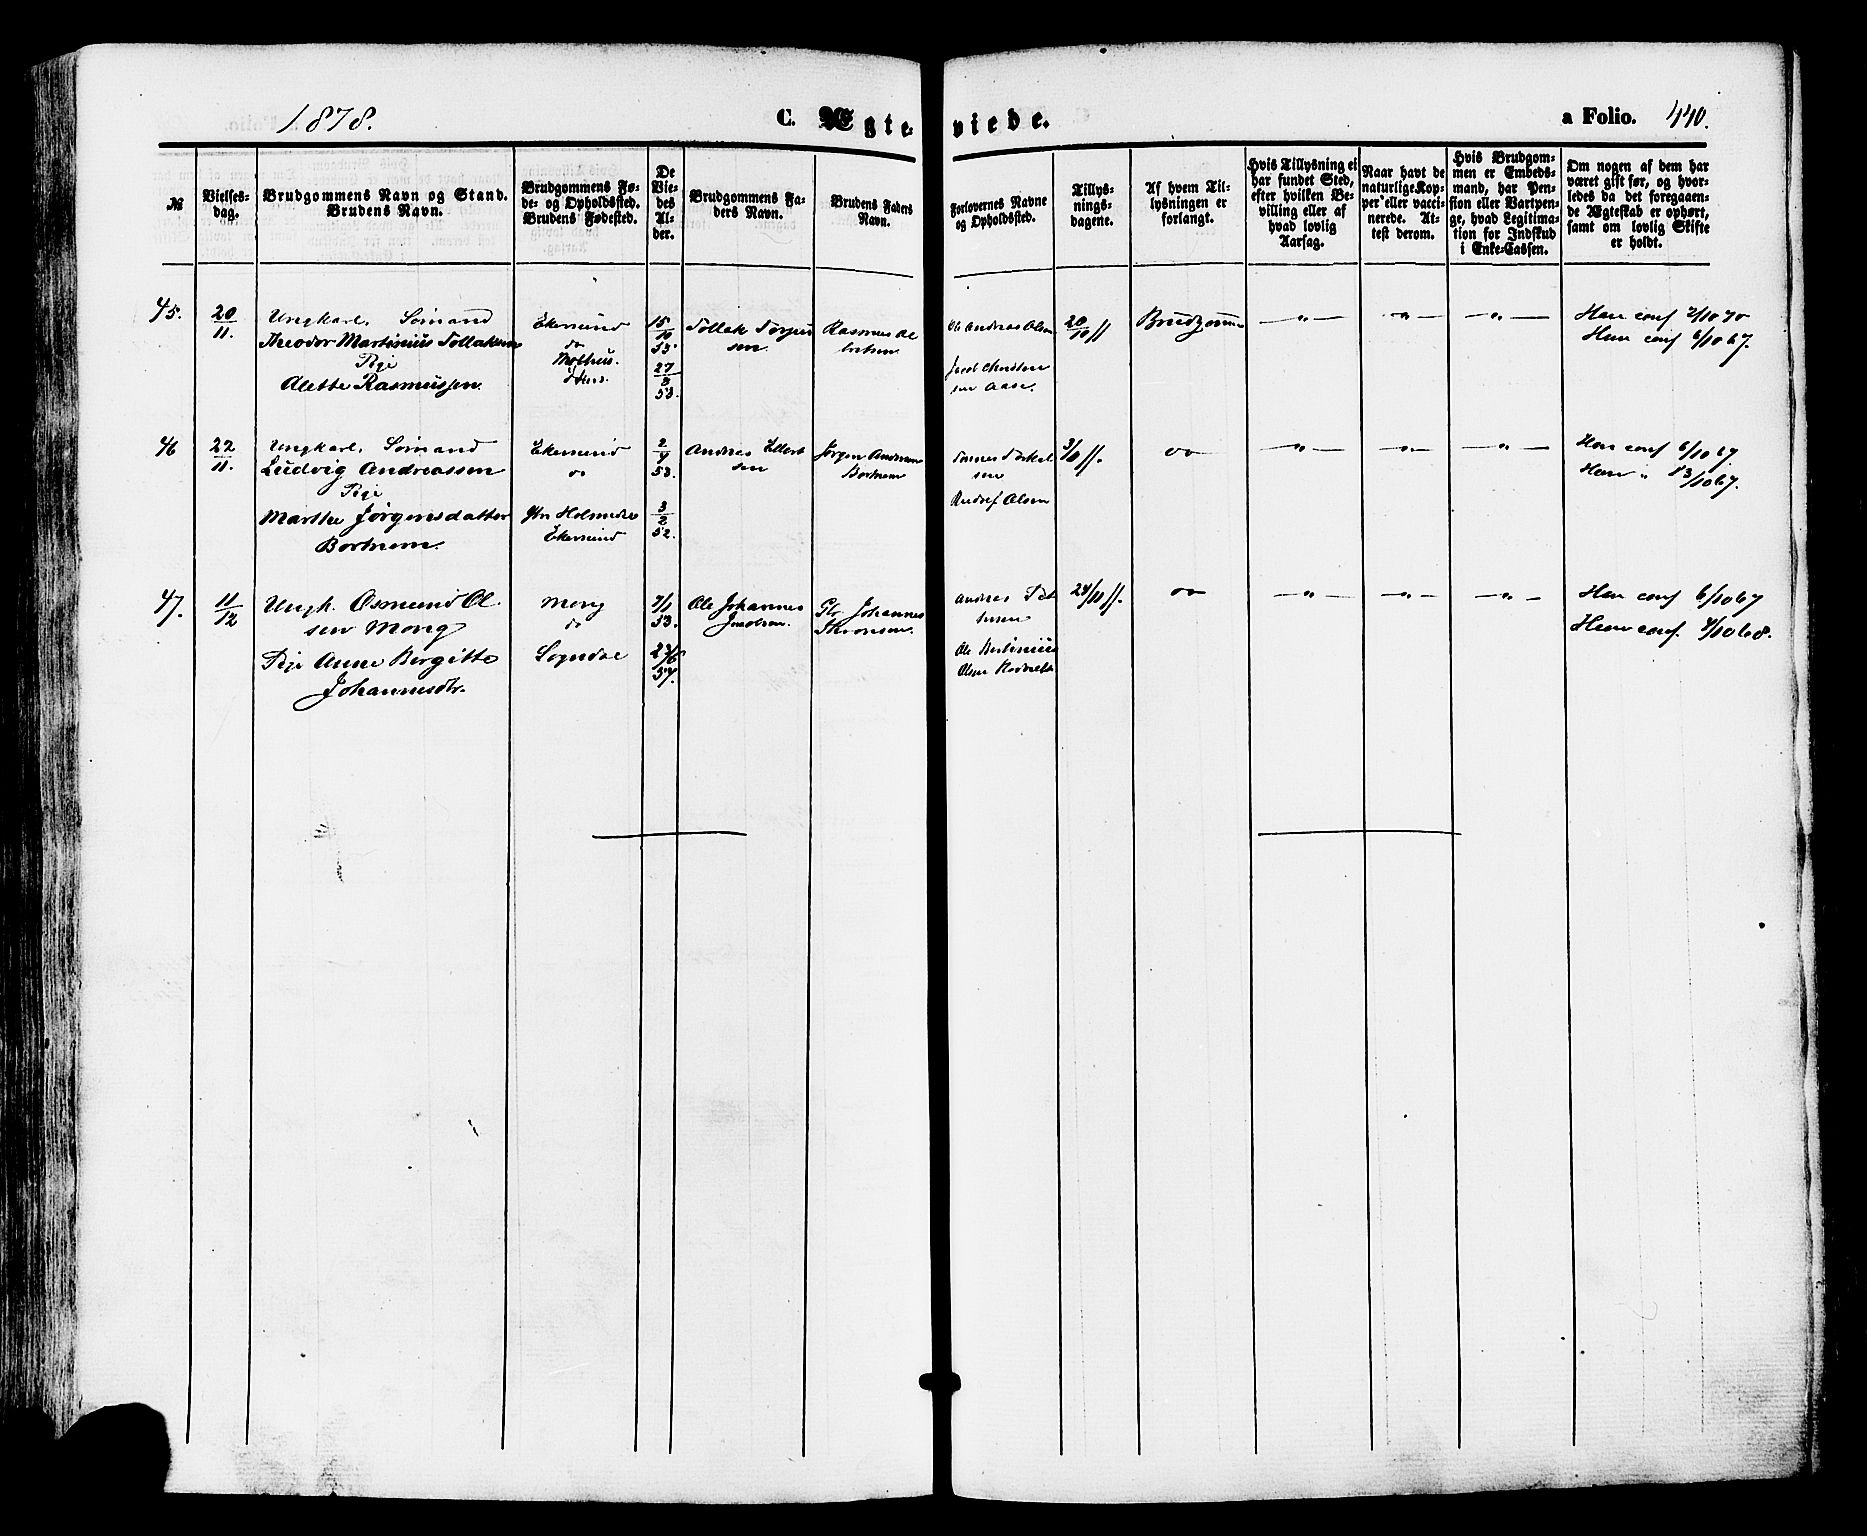 1878.
C. Ægteviede.
a Folio. 440.
№
Vielses-
dag.
Brudgommens Navn og Stand.
Brudens Navn.
Brudgommens Fø-
de- og Opholdssted.
Brudens Fødested.
De
Vie-
des
Al-
der.
Brudgommens Fa-
ders Navn.
Brudens Faders
Navn.
Forlovernes Navne
og Opholdssted.
Tillys-
nings-
dagene.
Af hvem Til-
lysningen er
forlangt.
Hvis Tillysning ei
har fundet Sted,
efter hvilken Be-
villing eller af
hvad lovlig
Aarsag.
Naar havt de
naturlige Kop-
per eller vacci-
nerede. At-
test derom.
Hvis Brudgom-
men er Embeds-
mand, har Pen-
sion eller Vartpen-
ge, hvad Legitima-
tion for Indskud
i Enke-Cassen.
Om nogen af dem har
været gift før, og hvor-
ledes da det foregaaen-
de Ægteskab er ophørt,
samt om lovlig Skifte
er holdt.
45.
20/11.
Ungkarl. Sømand
Theodor Martinius Tollaksen
Pige
Alette Rasmussen.
Ekersund
do
15/10 53
27/3 53.
Tollak Torjus
sen
Rasmus
Ole Andreas Olsen
20/10 //
Brudgom
— " —
— " —
— " —
Han conf 2/10 70
Hun conf 6/10 67.
46
22/11.
Ungkarl. Sømand
Ludvig Andreassen
Pige
Marthe Jørgensdatter
Bortnem.
Ekersund
do
Ekersund
2/4 53.
3/2 52.
Andreas
sen
Jørgen Andreas
Bortnem
sen
Rudolf Olsen
3/11 //.
do
— " —
— " —
— " —
Han conf 6/10 67
Hun " 13/10 67.
47.
11/12
Ungk. Osmund Ol
sen Mong
Pige Anne Bergitte
Johannesdtr.
Mong
do
Sogndal
7/1 53.
23/6 57.
Ole Johannes
Jacobsen.
Johannes
Andreas Pet
ersen
Ole Bertinius
Olsen
24/11 //.
do
— " —
— " —
— " —
Han conf 6/10 67
Hun conf. 4/10 68.